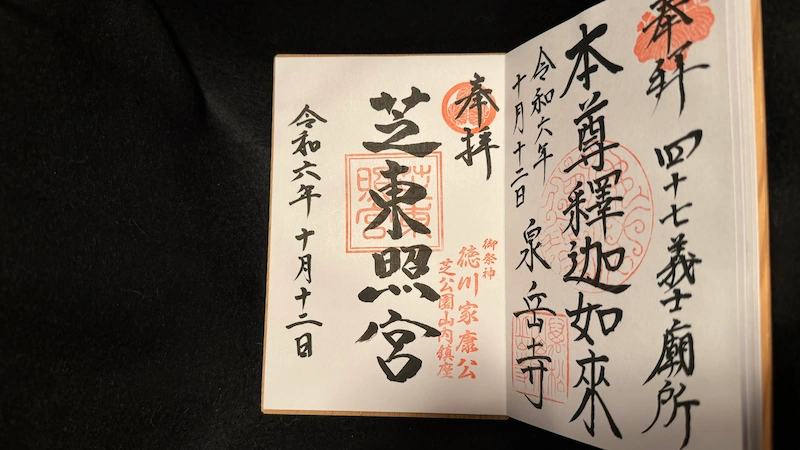 奉拝
四十七義士廟所
本尊釋迦如來
令和六年
十月十二日
泉岳寺
奉拝
御祭神
徳川家康公
芝公園山内鎮座
芝東照宮
芝東照宮
令和六年十月十二日